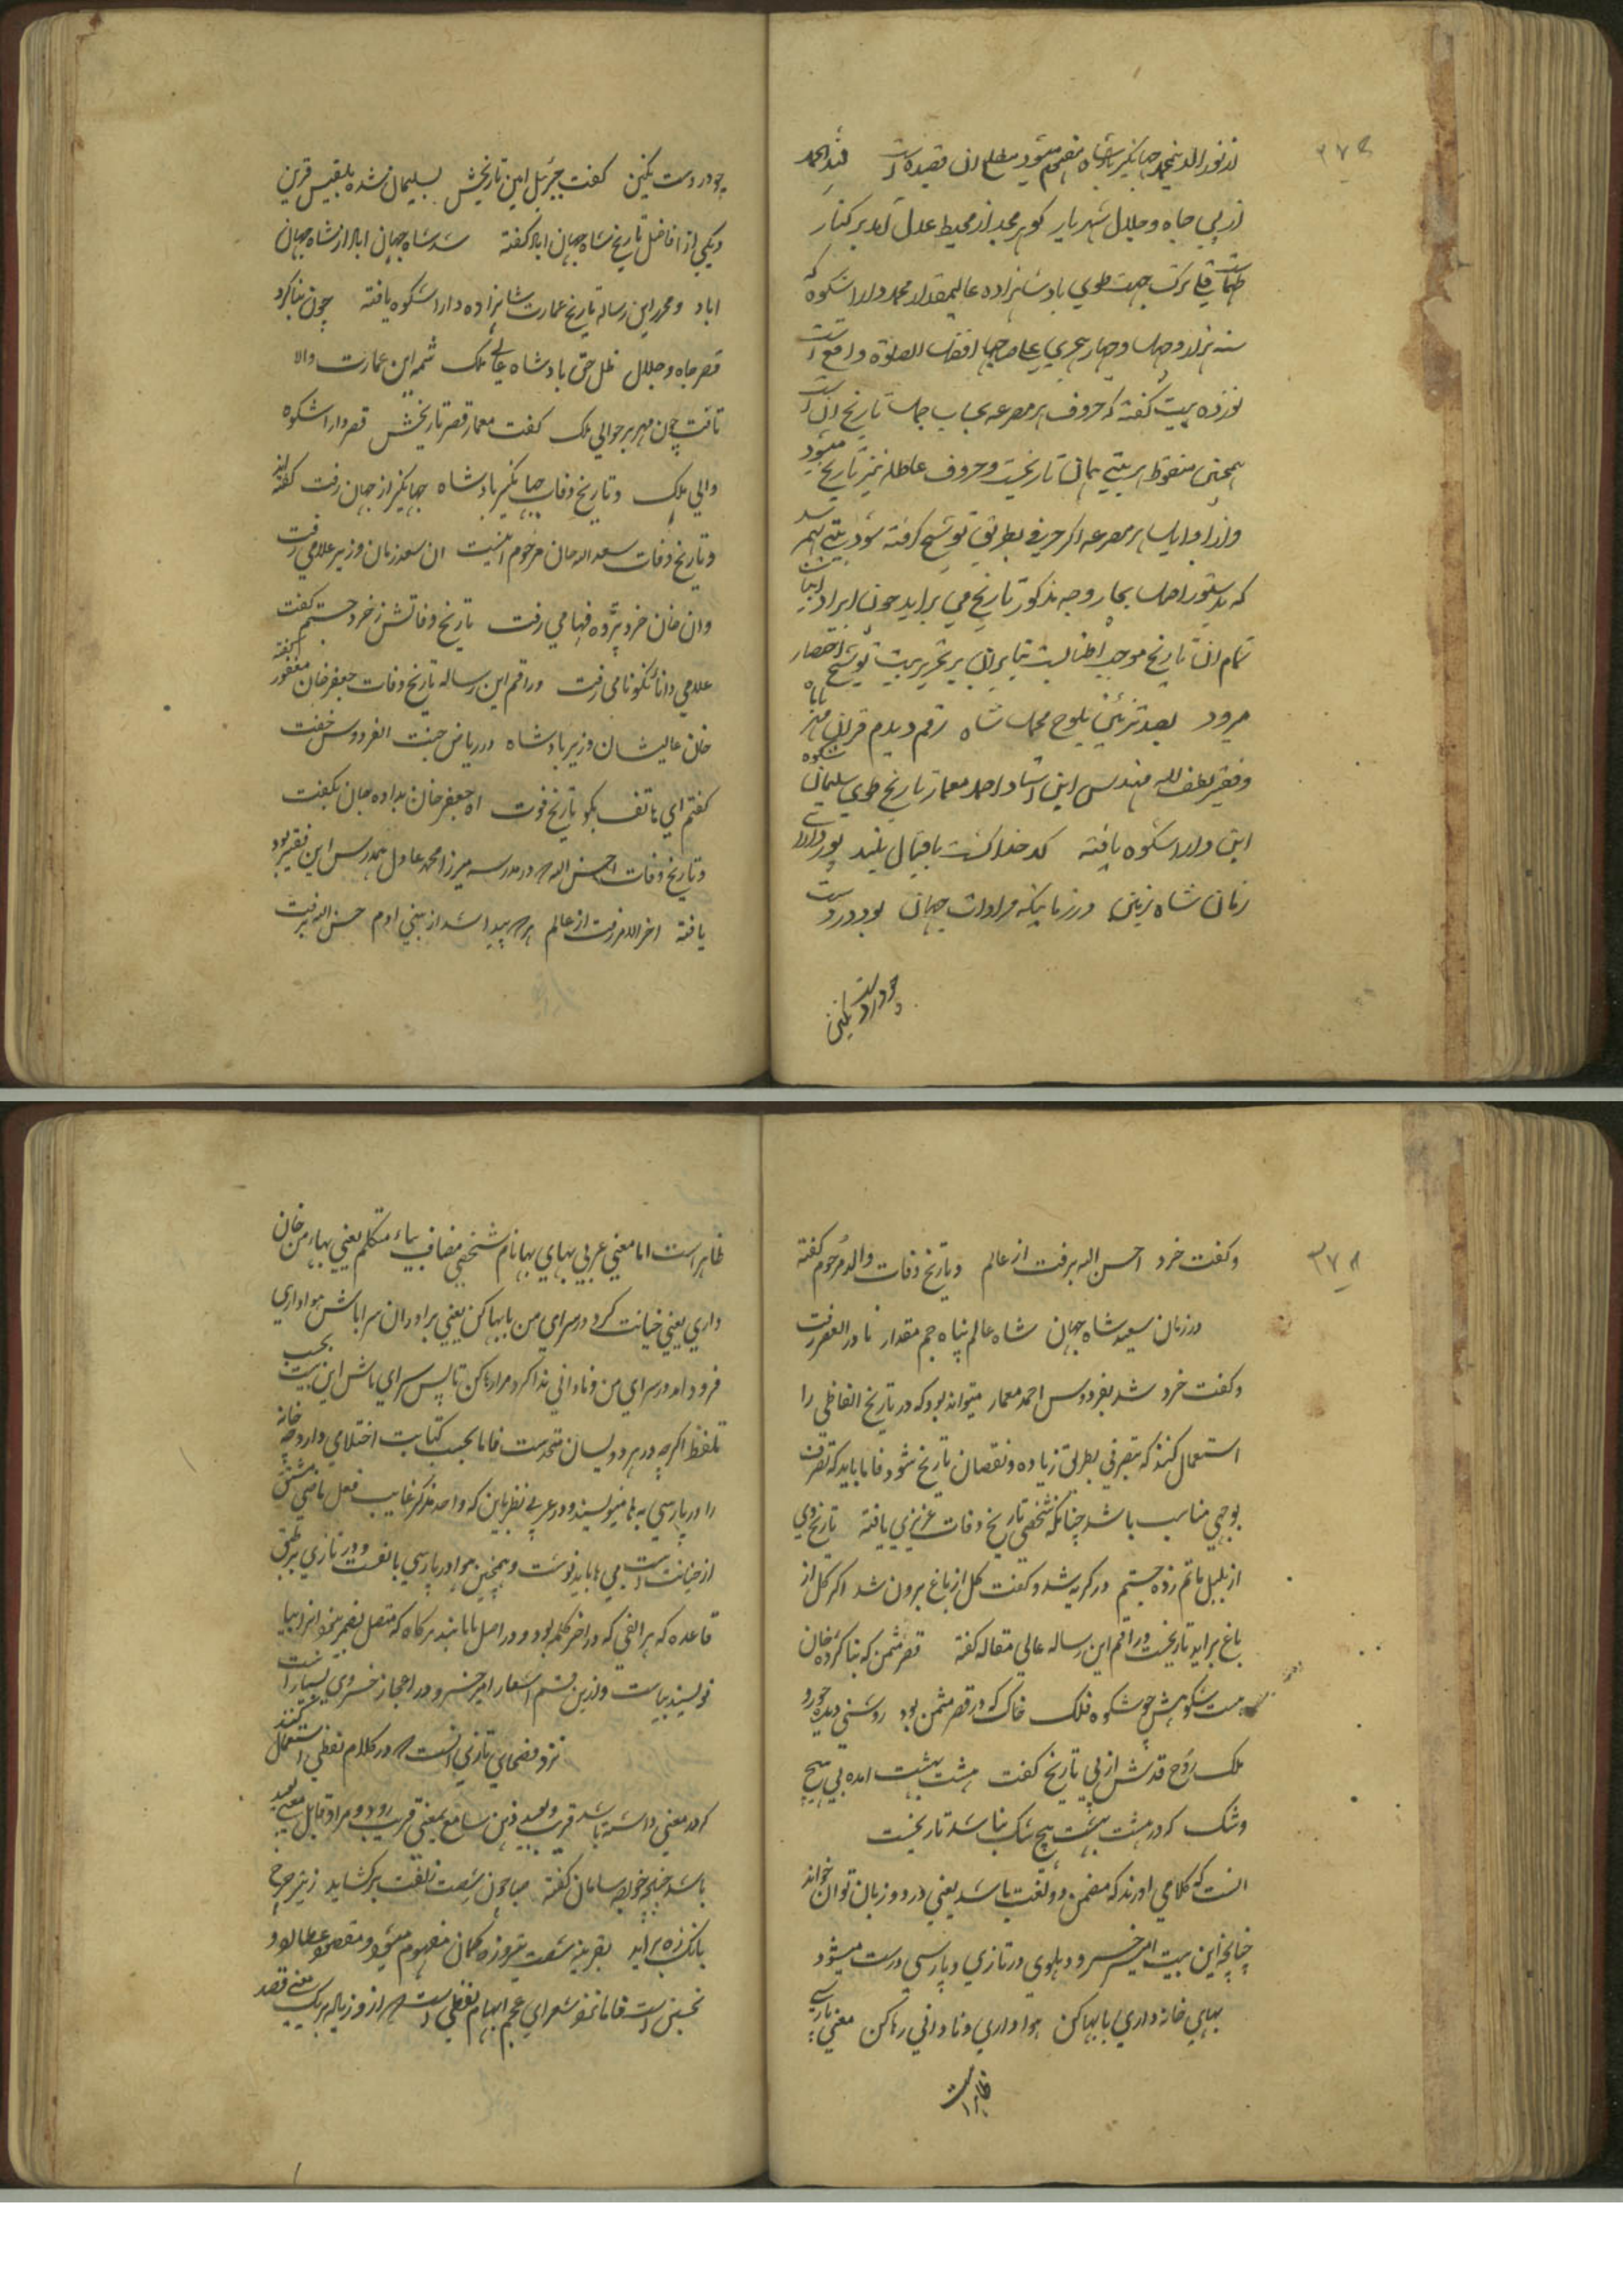 از نور الدین محمد جهانگیر بادشاه مفهوم میشود مطلع ان قصیده است لله الحمد
از پی جاه و جلال شهریار گوهر مجد از محیط عدل آمد بر کنار
جهت طوی بادشاهزاده عالیمقدار محمد دارا شکوه که
سنه هزار و چهل و چهار هجری علی صاحبها افضل الصلوة واقع است
نوزده بیت گفته که حروف هر مصرعه بحساب جمل تاریخ ان است
همچنین منقوط هر بیتی همان تاریخست و حروف عاطله نیز تاریخ میشود
و از اوایل هر مصرعه اگر حرفی بطریق توشیح گرفته شود بیتی بهم رسد
که بدستور اصل بچار وجه مذکور تاریخ می براید چون ایراد ابیات
تمام ان تاریخ موجب اطنابست بنابران بر تحریر بیت توشیح اختصار
میرود بصد تزئین بلوح محمل شاه رقم دیدم قران ماه
و فقیر لطف الله مهندس ابن استاد احمد معمار تاریخ طوی سلیمان شکوه
ابن دارا شکوه یافته کدخدا گشت باقبال بلند پور دارای
زمان شاه زمین در زمانیکه مرادات جهان بود در دست
چو در دست نگین
۳۷۴
چو در دست نگین گفت جبرئیل امین تاریخش بسلیمان شده بلقیس قرین
و یکی از افاضل تاریخ شاه جهان اباد گفته شد شاه جهان اباد از شاه جهان
اباد و محرر این رساله تاریخ عمارت شاهزاده دارا شکوه یافته چون بنا کرد
قصر جاه و جلال ظل حق بادشاه عالی ملک شمه این عمارت والا
تافت چون مهر بر حوالی ملک گفت معمار قصر تاریخش قصر دارا شکوه
والی ملک و تاریخ وفات جهانگیر بادشاه جهانگیر از جهان رفت گفته اند
و تاریخ وفات سعد الله خان مرحوم اینست ان سعد زمان وزیر علامی رفت
وان خان خرد پژوه فهامی رفت تاریخ وفاتش ز خرد جستم گفت
علامی دانا نکونامی رفت و راقم این رساله تاریخ وفات جعفر خان مغفور گفته
خان عالیشان وزیر بادشاه در ریاض جنت الفردوس خفت
گفتم ای هاتف بگو تاریخ فوت اه جعفر خان بداده جان بگفت
و تاریخ وفات احسن الله که در مدرسه میرزا محمد عادل همدرس این فقیر بود
یافته اخر الامر رفت از عالم هر که پیدا شد از بنی ادم حسن الله برفت
و گفت خرد احسن الله برفت از عالم و تاریخ وفات والد مرحوم گفته
در زمان سعید شاه جهان شاه عالم پناه جم مقدار نادر العصر رفت
و گفت خرد شد بفردوس احمد معمار میتواند بود که در تاریخ الفاظی را
استعمال کنند که بتصرفی بطریق زیاده و نقصان تاریخ شود فاما باید که تصرف
بوجهی مناسب باشد چنانکه شخصی تاریخ وفات عزیزی یافته تاریخ وی
از بلبل ماتم زده جستم در گریه شد و گفت گل از باغ برون شد اگر گل از
باغ براید تاریخست و راقم این رساله عالی مقاله گفته قصر مثمن که بنا کرده خان
هست شکوهش چو شکوه فلک خاک که در قصر مثمن بود روشنی دیده حور و
ملک روح قدش از پی تاریخ گفت هشت بهشت امده بی هیچ
و شک که در هشت بهشت هیچ شک نباشد تاریخست
انست که کلامی اورند که متضمن دو لغت باشد یعنی در دو زبان توان خواند
چنانچه این بیت امیر خسرو دهلوی در تازی و پارسی درست میشود
بهای خانه داری با بها کن هواداری و نادانی رها کن معنی پارسی
ظاهر است
۳۷۸
ظاهر است اما معنی عربی بهای بها نام شخصی مضاف بیاء متکلم یعنی بهاء من خان
داری یعنی خیانت کرد در سرای من بابها کن یعنی برادران سرا باش هواداری
فرود امد در سرای من و نادانی ندا کرد مرا رها کن تا پس سرای باش این بیت بحسب
تلفظ اگرچه در هر دو لسان متحدست فاما بحسب کتابت اختلافی دارد چه خانه
را در پارسی به ها مینویسند و در عربی نظر باین که واحد مذکر غایب فعل ماضی مشتق
از خیانت است بی ها باید نوشت و همچنین هوا در پارسی بالفست و در تازی بر طبق
قاعده که هر الفی که در اخر کلمه بود و در اصل یا باشد هر گاه که متصل بضمیر نبود انرا بیا
نویسند بیاست و ازین قسم اشعار امیر خسرو در اعجاز خسروی بسیار است
نزد فصحای تازی انست که در کلام لفظی استعمال کنند
که دو معنی داشته باشد قریب و بعید ذهن سامع بمعنی قریب رود و مراد قایل معنی بعید
باشد چنانچه خواجه سلمان گفته صبا چون شصت زلفت بر گشاید ز تیر چرخ
بانک زه براید بقرینه شصت تیر و زه کمان مفهوم میشود و مقصود عطارد و
تحسین است فاما نحو شعرای عجم ایهام لفظی است که از و زیاده بر یک معنی قصد